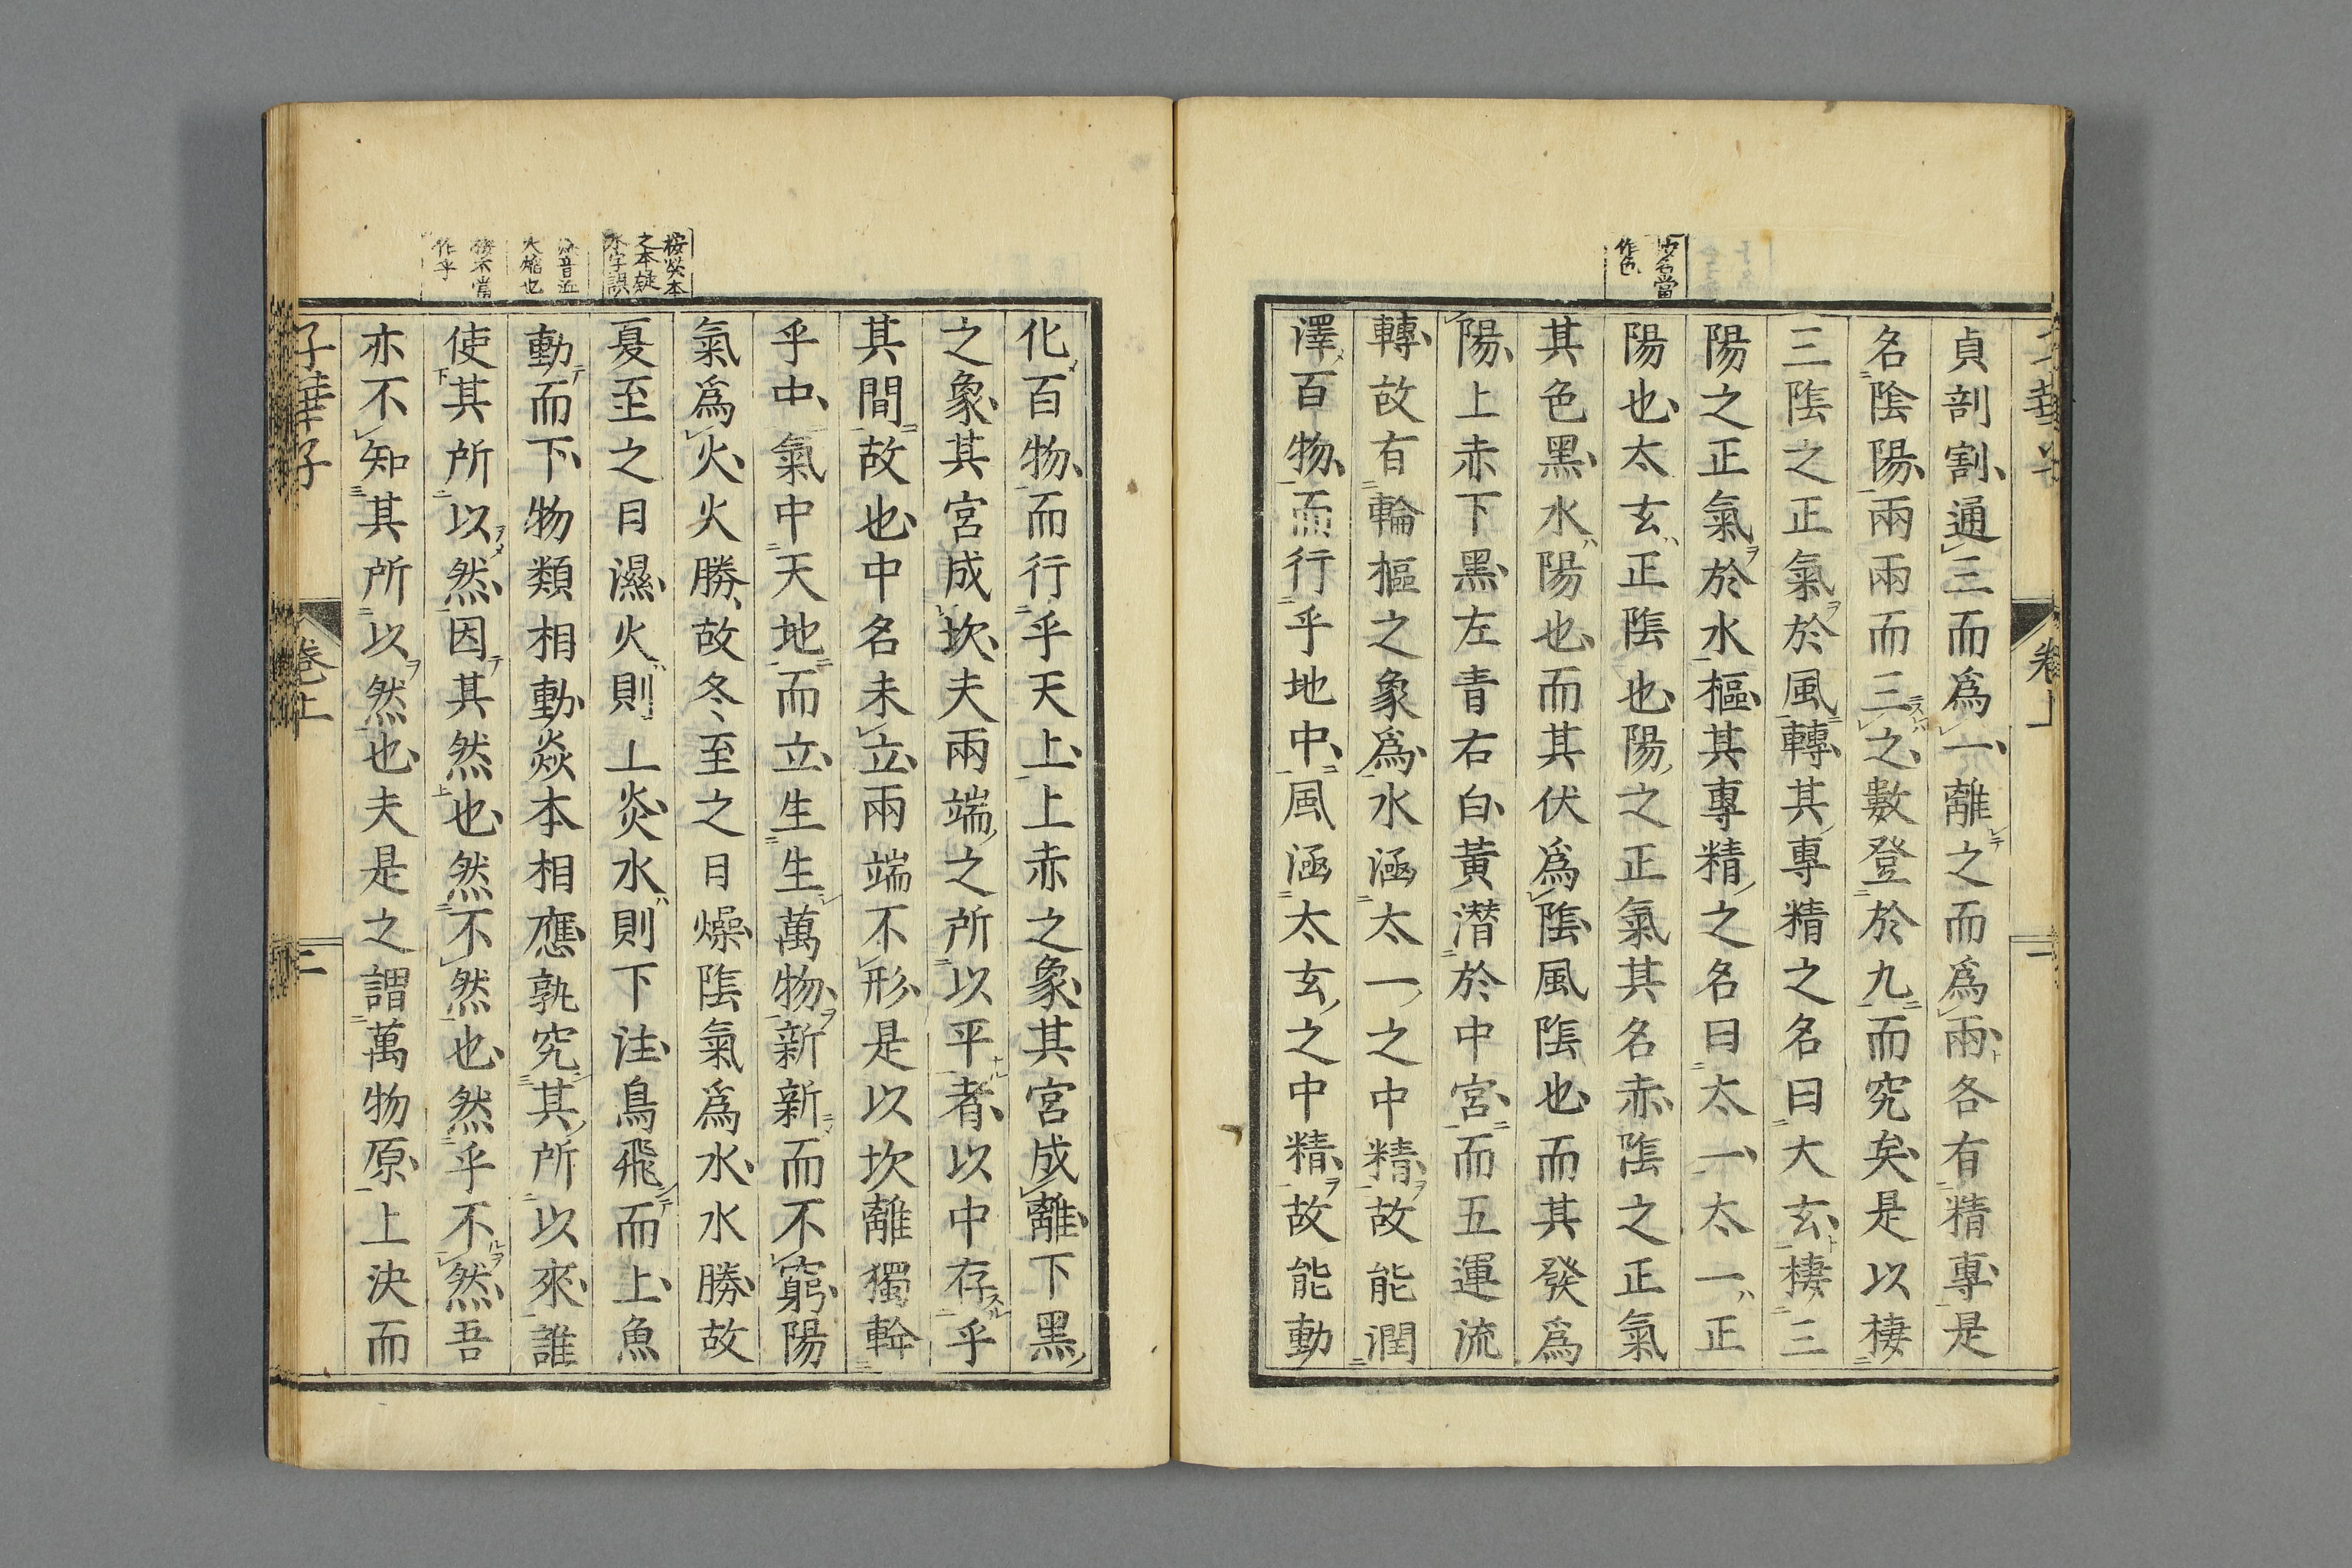 名當
作色
貞剖割通三而爲一離之而爲兩各有精專是
名陰陽兩兩而三之數登於九而究矣是以棲
三陰之正氣於風轉其專精之名曰大玄棲三
陽之正氣於水樞其專精之名曰太一太一正
陽也太玄正陰也陽之正氣其名赤陰之正氣
其色黑水陽也而其伏爲陰風陰也而其發爲
陽上赤下黑左青右白黃潛於中宮而五運流
轉故有輪樞之象焉水涵太一之中精故能潤
澤百物而行乎地中風涵太玄之中精故能動
卷上
二
按焱本
之本疑
水字誤
音
大熖也
按不當
作乎
化百物而行乎天上上赤之象其宮成離下黑
之象其宮成坎夫兩端之所以平者以中存乎
其間故也中名未立兩端不形是以坎離獨斡
乎中氣中天地而立生生萬物新新而不窮陽
氣爲火火勝故冬至之日燥陰氣爲水水勝故
夏至之日濕火則上炎水則下注鳥飛而上魚
動而下物類相動焱本相應孰究其所以來誰
使其所以然因其然也然不然也然乎不然吾
亦不知其所以然也夫是之謂萬物原上決而
子華子
卷上
二